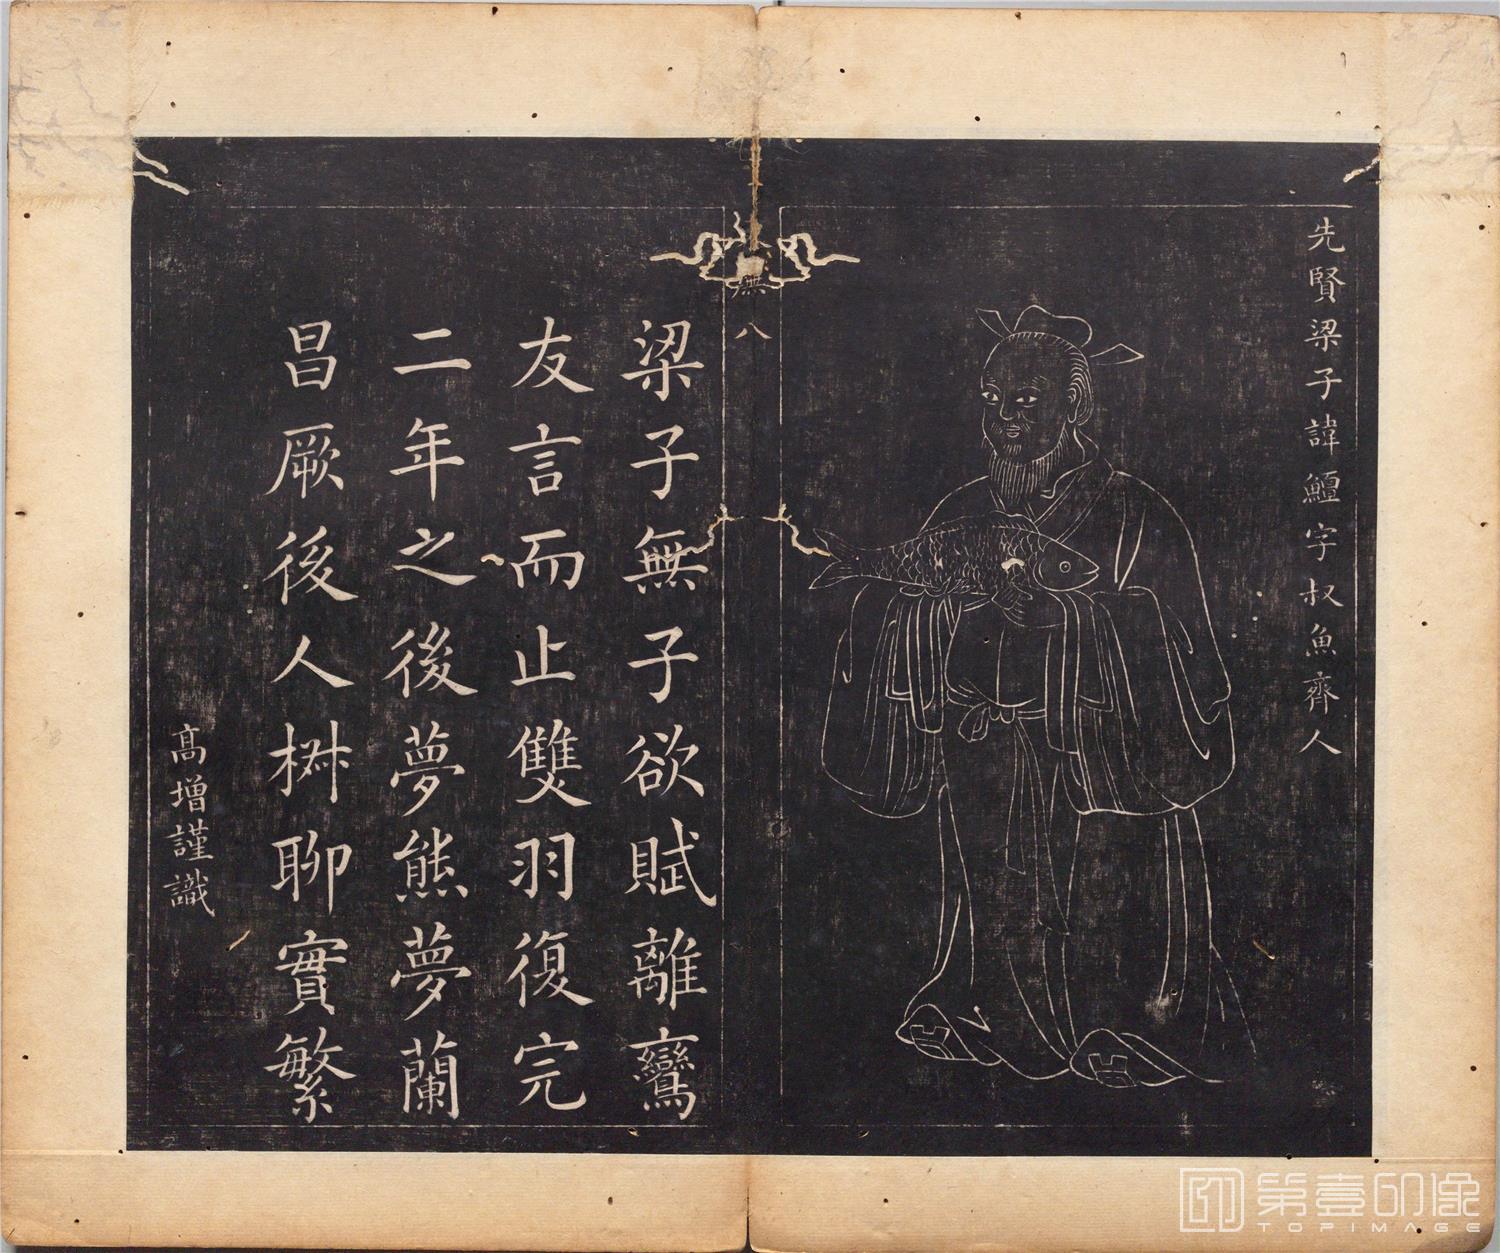 先賢梁子諱鱣字叔魚齊人
廡八
梁子無子欲賦離鸞
友言而止雙羽復完
二年之後夢熊夢蘭
昌厥後人椒聊實繁
高增謹識
第壹印像
TOPIMAGE